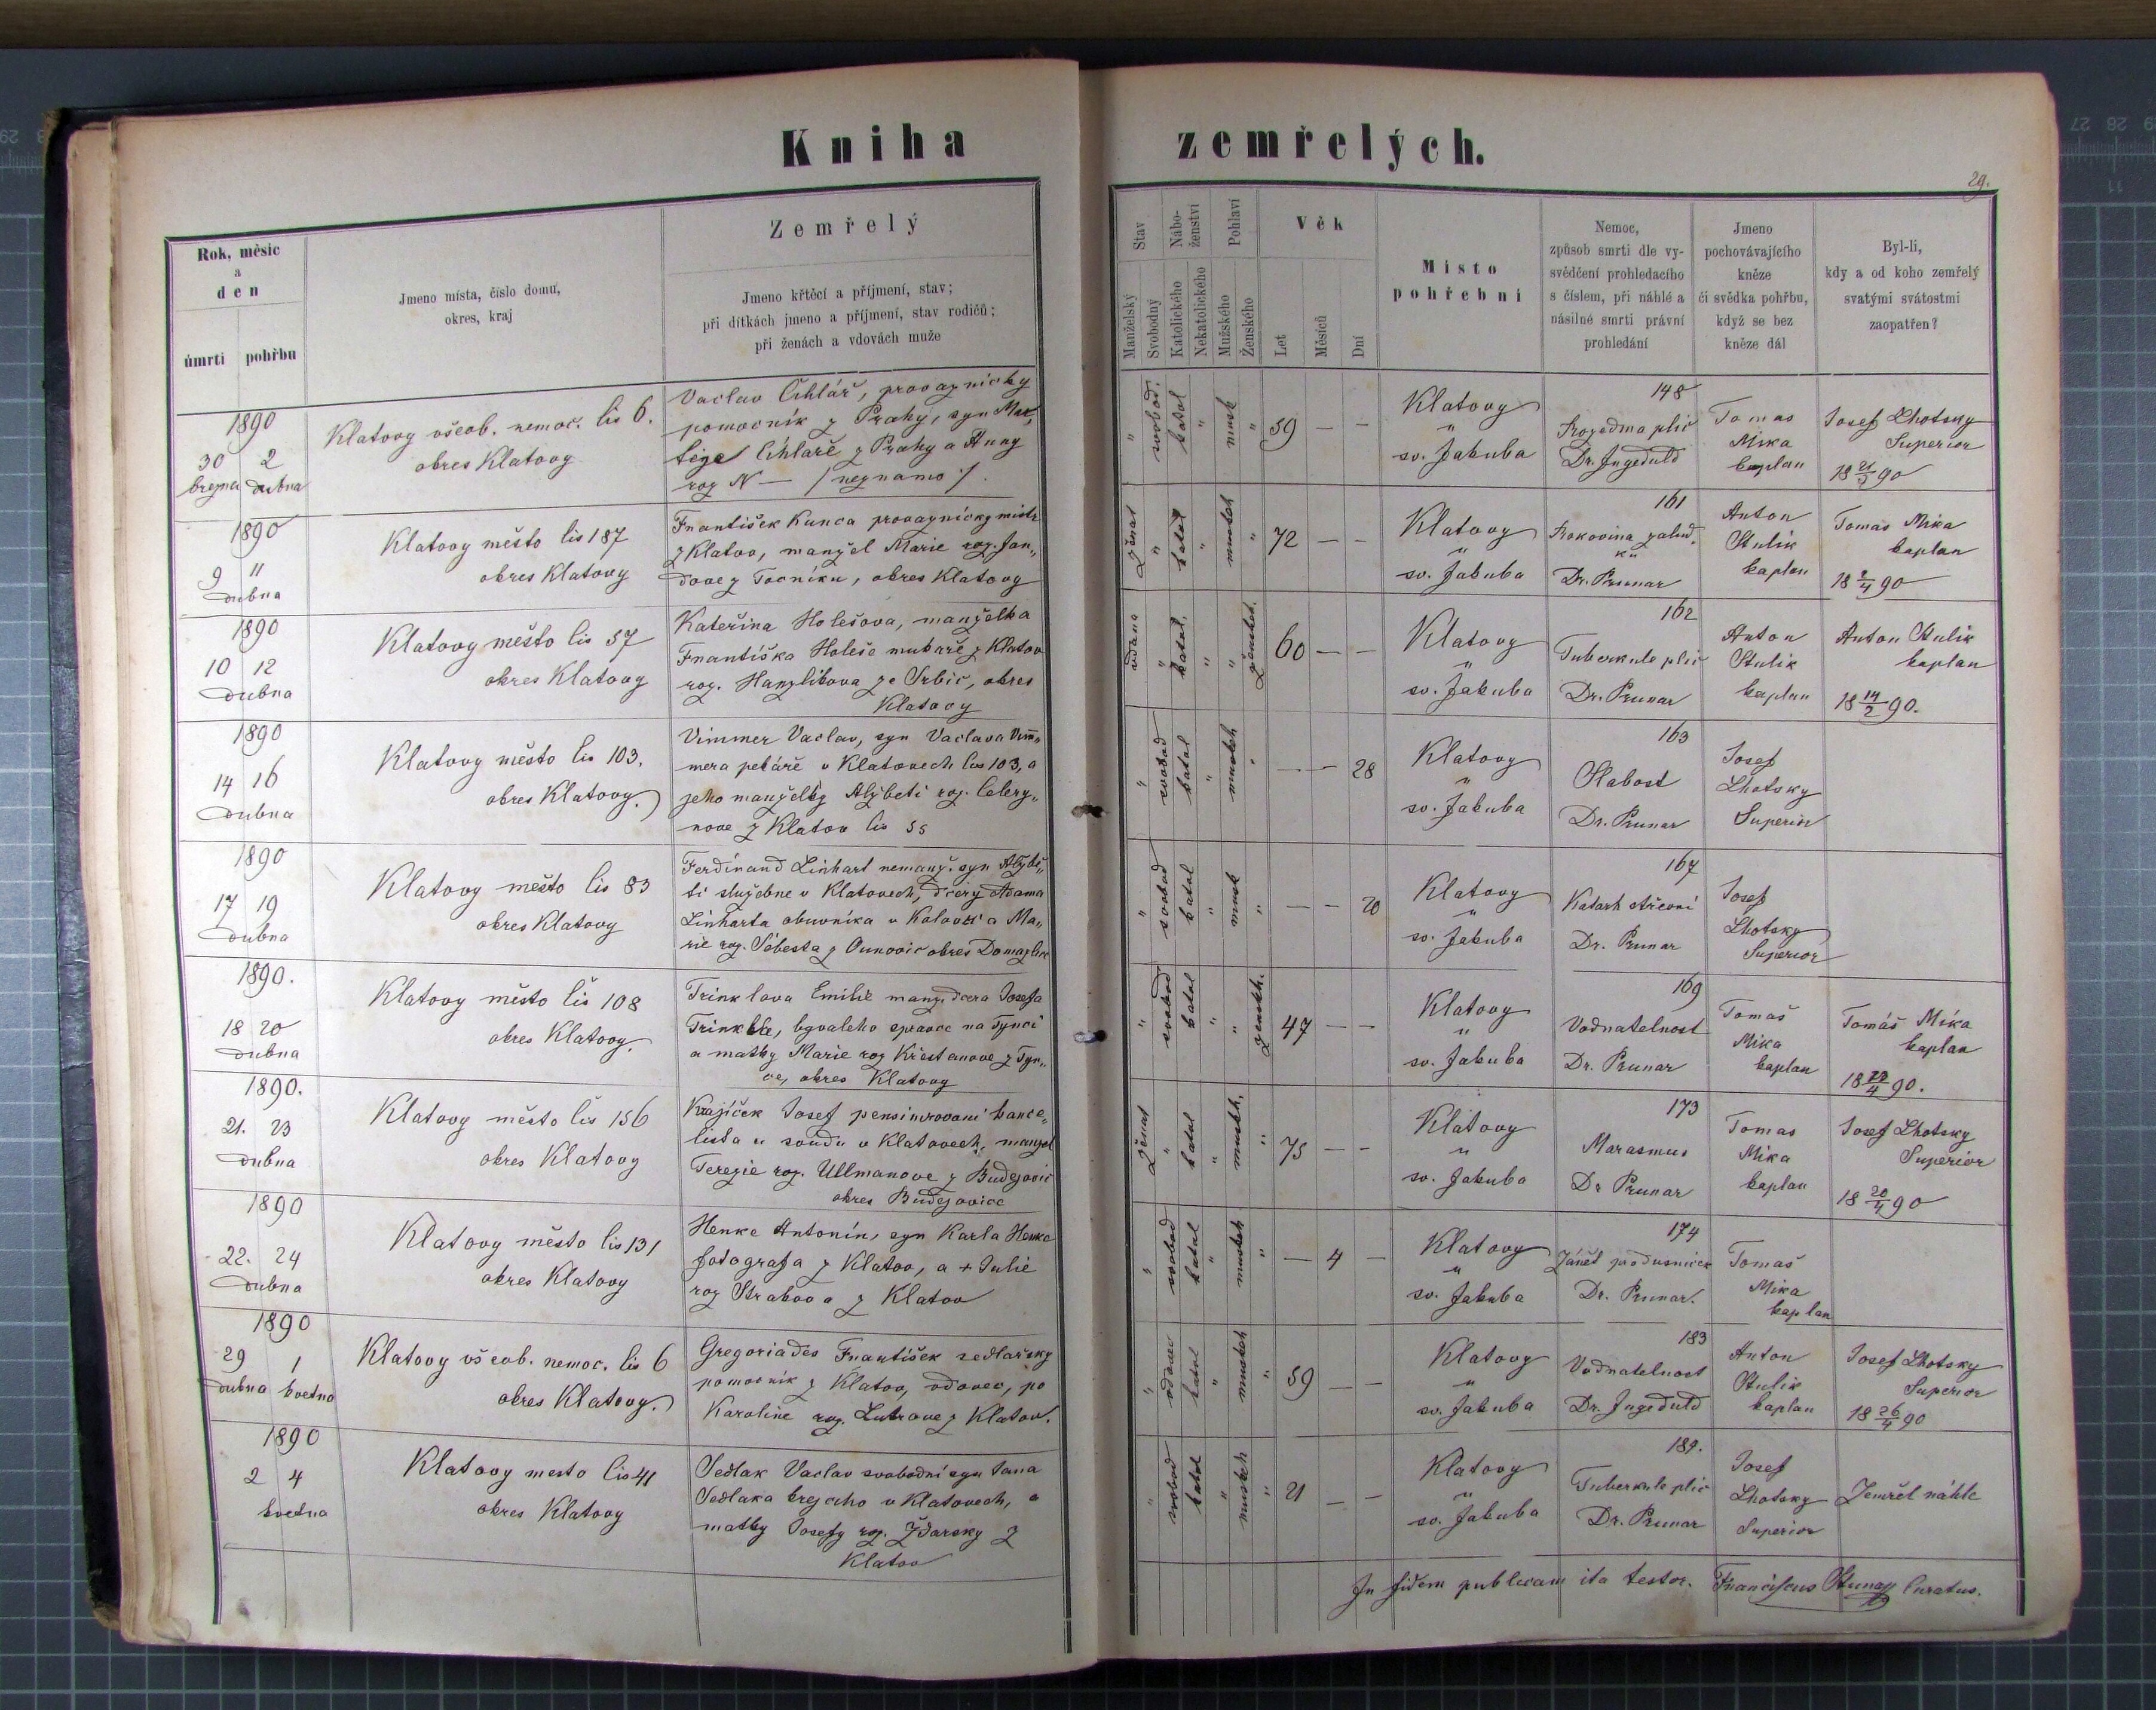 Kniha zemřelých.
29.
Rok, měsíc
a
den
úmrtí pohřbu
Jmeno místa, číslo domu,
okres, kraj
Zemřelý
Jmeno křtěcí a příjmení, stav;
při dítkách jmeno a příjmení, stav rodičů;
při ženách a vdovách muže
Stav
Manželský
Svobodný
Nábo-
ženství
Katolického
Nekatolického
Pohlaví
Mužského
Ženského
Věk
Let
Měsíců
Dní
Místo
pohřební
Nemoc,
způsob smrti dle vy-
svědčení prohledacího
s číslem, při náhlé a
násilné smrti právní
prohledání
Jmeno
pochovávajícího
kněze
či svědka pohřbu,
když se bez
kněze dál
Byl-li,
kdy a od koho zemřelý
svatými svátostmi
zaopatřen?
1890
30 2
brezna dubna
Klatovy všeob. nemoc. čis 6.
okres Klatovy
Vaclav Cihlář, provaznicky
pomocnik z Prahy, syn Ma-
teje Cihlaře z Prahy a Anny
roz N — /neznamo/.
" svobod. katol " musk " 59 — —
Klatovy
"
sv. Jakuba
148
Rozedma plic
Dr. Ingeduld
Tomas
Mika
kaplan
Josef Lhotsky
Superior
18 21/3 90
1890
9 11
dubna
Klatovy město čis 187
okres Klatovy
František Kunca provaznicky mistr
z Klatov, manžel Marie roz. Jan„
dove z Tocniku, okres Klatovy
ženat " katol " muskeh " 72 — —
Klatovy
"
sv. Jakuba
161
Rakovina zalud„
ku
Dr. Prunar
Anton
Stulik
kaplan
Tomas Mika
kaplan
18 8/4 90
1890
10 12
dubna
Klatovy město čis 57
okres Klatovy
Kateřina Holešova, manželka
Františka Holeše mukaře z Klatov
roz. Hanzlikova ze Srbic, okres
Klatovy
vdana " katol. " " ženskeh. 60 — —
Klatovy
"
sv. Jakuba
162
Tuberkule plic
Dr. Prunar
Anton
Stulik
kaplan
Anton Stulik
kaplan
18 14/2 90.
1890
14 16
dubna
Klatovy město čis 103.
okres Klatovy.
Vimmer Vaclav, syn Vaclava Vim„
mera pekáře v Klatovech čis 103, a
jeho manželky Alžbeti roz. Celery„
nove z Klatov čis 55
" svobod katol " muskeh " — — 28
Klatovy
"
sv. Jakuba
163
Slabost
Dr. Prunar
Josef
Lhotsky
Superior
1890
17 19
dubna
Klatovy město čis 83
okres Klatovy
Ferdinand Linhart nemanž. syn Alžbě„
ti služebne v Klatovech, dcery Adama
Linharta obuvníka v Kolovci a Ma„
rie roz. Šebesta z Ounovic okres Domazlice
" svobod katol " musk " — — 20
Klatovy
"
sv. Jakuba
167
Katarh střevní
Dr. Prunar
Josef
Lhotsky
Superior
1890.
18 20
dubna
Klatovy město čis 108
okres Klatovy.
Trinklova Emilie manz. dcera Josefa
Trinkle, byvaleho spravce na Tynci
a matky Marie roz Křestanove z Tyn„
ce, okres Klatovy
" svobod katol " " ženskh. 47 — —
Klatovy
"
sv. Jakuba
169
Vodnatelnost
Dr. Prunar
Tomaš
Mika
kaplan
Tomáš Mika
kaplan
1890.
21. 23
dubna
Klatovy město čis 156
okres Klatovy
Krajíček Josef pensinovovaní kance„
lista u soudu v Klatovech, manzel
Terezie roz. Ullmanove z Budejovic
okres Budějovice
ženat " katol " muskh. " 75 — —
Klatovy
"
sv. Jakuba
173
Marasmus
Dr Prunar
Tomas
Mika
kaplan
Josef Lhotsky
Superior
18 20/4 90
1890
22. 24
dubna
Klatovy město čis 131
okres Klatovy
Henke Antonín, syn Karla Henke
fotografa z Klatov, a + Julie
roz Strakova z Klatov
" svobod katol " muskeh " — 4 —
Klatovy
"
sv. Jakuba
174
Zánět průdusnicek
Dr. Prunar.
Tomaš
Mika
kaplan
1890
29 1
dubna kvetna
Klatovy všeob. nemoc. čis 6
okres Klatovy.
Gregoriades František sedlařsky
pomocnik z Klatov, vdovec, po
Karoline roz. Lubrove z Klatov.
" vdovec katol " muskeh " 59 — —
Klatovy
"
sv. Jakuba
183
Vodnatelnost
Dr. Ingeduld
Anton
Stulik
kaplan
Josef Lhotsky
Superior
18 26/4 90
1890
2 4
kvetna
Klatovy mesto čis 41
okres Klatovy
Sedlak Vaclav svobodní syn Jana
Sedlaka krejciho v Klatovech, a
matky Josefy roz. Ždarsky z
Klatov
" svobod katol " muskeh " 21 — —
Klatovy
"
sv. Jakuba
189.
Tuberkule plic
Dr. Prunar
Josef
Lhotsky
Superior
Zemřel náhle
In fidem publicam ita testor. Franciscus Curatus.